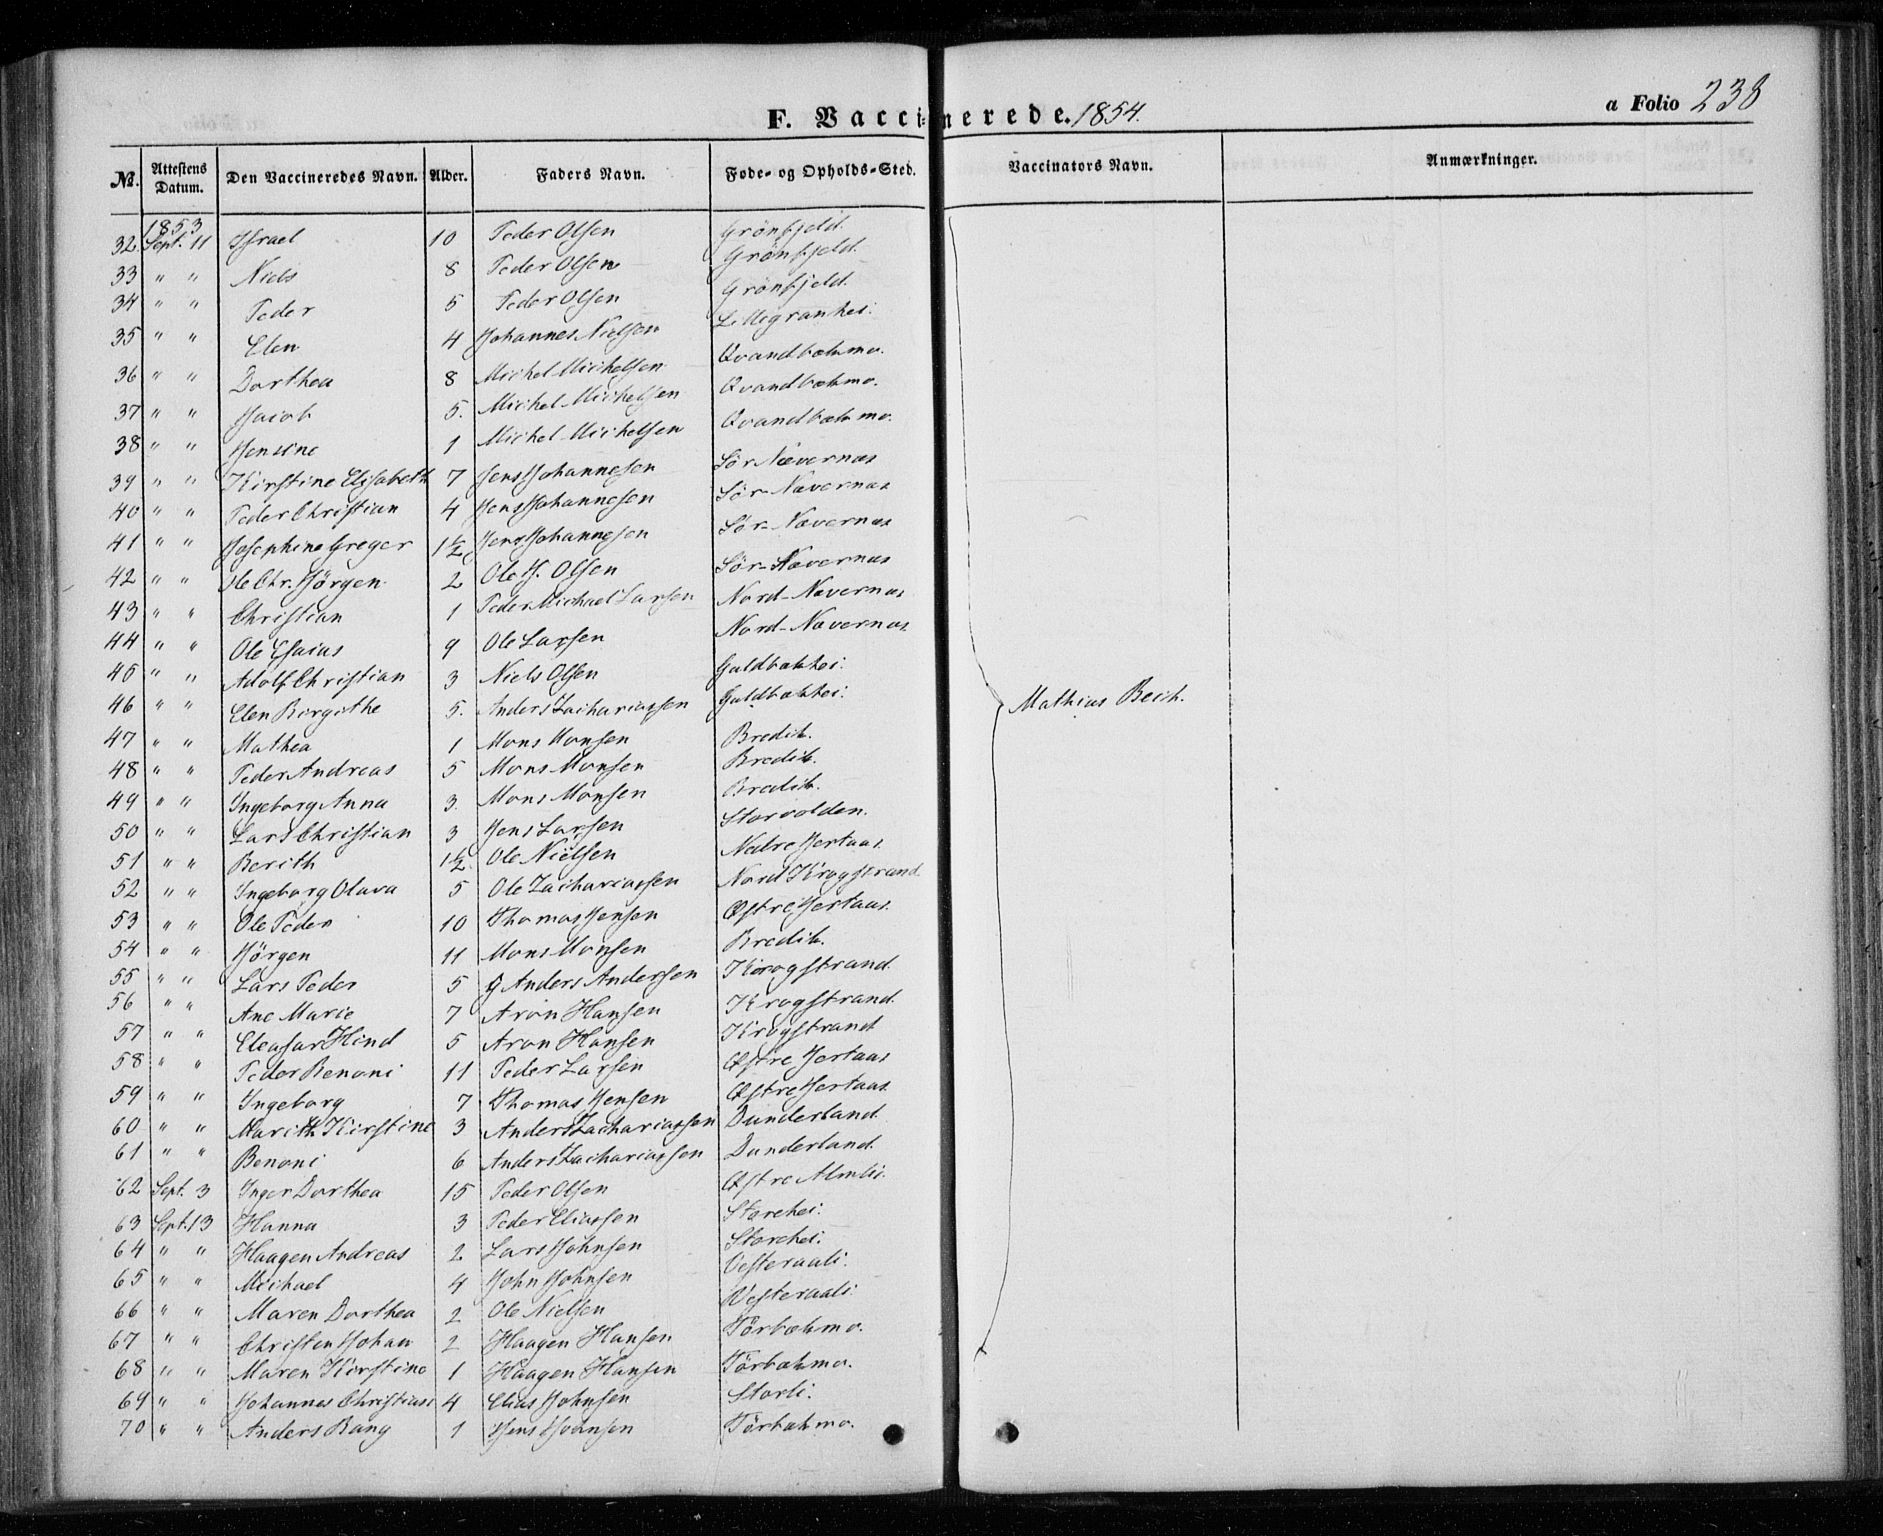 F. Vaccinerede. 1854.
a Folio 238
No. Attestens Datum. Den Vaccineredes Navn. Alder. Faders Navn. Føde- og Opholds-Sted. Vaccinators Navn. Anmærkninger.
1853
32. Sept. 11 Israel 10 Peder Olsen Grönfjeld.
33 " " Niels 8 Peder Olsen Grönfjeld.
34 " " Peder 5 Peder Olsen Grönfjeld.
35 " " Elen 4 Johannes Nielsen Lillegranhei.
36 " " Dorthea 8 Michel Michelsen Qvandbækmo.
37 " " Jacob 5. Michel Michelsen Qvandbækmo.
38 " " Jensine 1 Michel Michelsen Qvandbækmo.
39 " " Kirstine Elisabeth 7 Jens Johannesen Sör Nævernæs
40 " " Peder Christian 4 Jens Johannesen Sör-Nævernæs
41 " " Josephine Greger 1½ Jens Johannesen Sör-Nævernæs
42 " " Ole Chr. Jörgen 2 Ole J. Olsen Sör-Nævernæs
43 " " Christian 1 Peder Michael Larsen Nord-Nævernæs
44 " " Ole Esaias 9 Ole Larsen Nord-Nævernæs
45 " " Adolf Christian 3 Niels Olsen Guldbækhei.
46 " " Elen Birgithe 5. Anders Zachariassen Guldbækhei.
47 " " Mathea 1 Mons Monsen Bredik.
48 " " Peder Andreas 5 Mons Monsen Bredik.
49 " " Ingeborg Anna 3. Mons Monsen Bredik.
50 " " Lars Christian 3 Jens Larsen Storvolden.
51 " " Berith 1½ Ole Nielsen Nedre Hjertaas.
52 " " Ingeborg Olava 5 Ole Zachariassen Nord Krogstrand
53 " " Ole Peder 10 Thomas Jensen Østre Hjertaas.
54 " " Jörgen 11 Mons Monsen Bredik.
55 " " Lars Peder 5 Anders Andersen Krogstrand.
56 " " Ane Marie 7 Aron Hansen Krogstrand.
57 " " Eleasar Hind 5 Aron Hansen Krogstrand
58 " " Peder Benoni 11 Peder Larsen Østre Hjertaas
59 " " Ingeborg 7 Thomas Jensen Østre Hjertaas
60 " " Marith Kirstine 3 Anders Zachariassen Dunderland
61 " " Benoni 6 Anders Zachariassen Dunderland.
62 Sept. 3 Inger Dorthea 15 Peder Olsen Østre Almli.
63 Sept. 13 Hanna 3 Peder Eliassen Storehei.
64 " " Haagen Andreas 2 Lars Johnsen Storehei.
65 " " Michael 4 John Johnsen Vesteraali.
66 " " Maren Dorthea 2 Ole Nielsen Vesteraali
67 " " Christen Johan 2 Haagen Hansen Törbækmo.
68 " " Maren Kirstine 1 Haagen Hansen Törbækmo.
69 " " Johannes Christian 4 Elias Johnsen Storli.
70 " " Anders Bang 1 Jens Hvansen Törbækmo.
Mathias Bech.